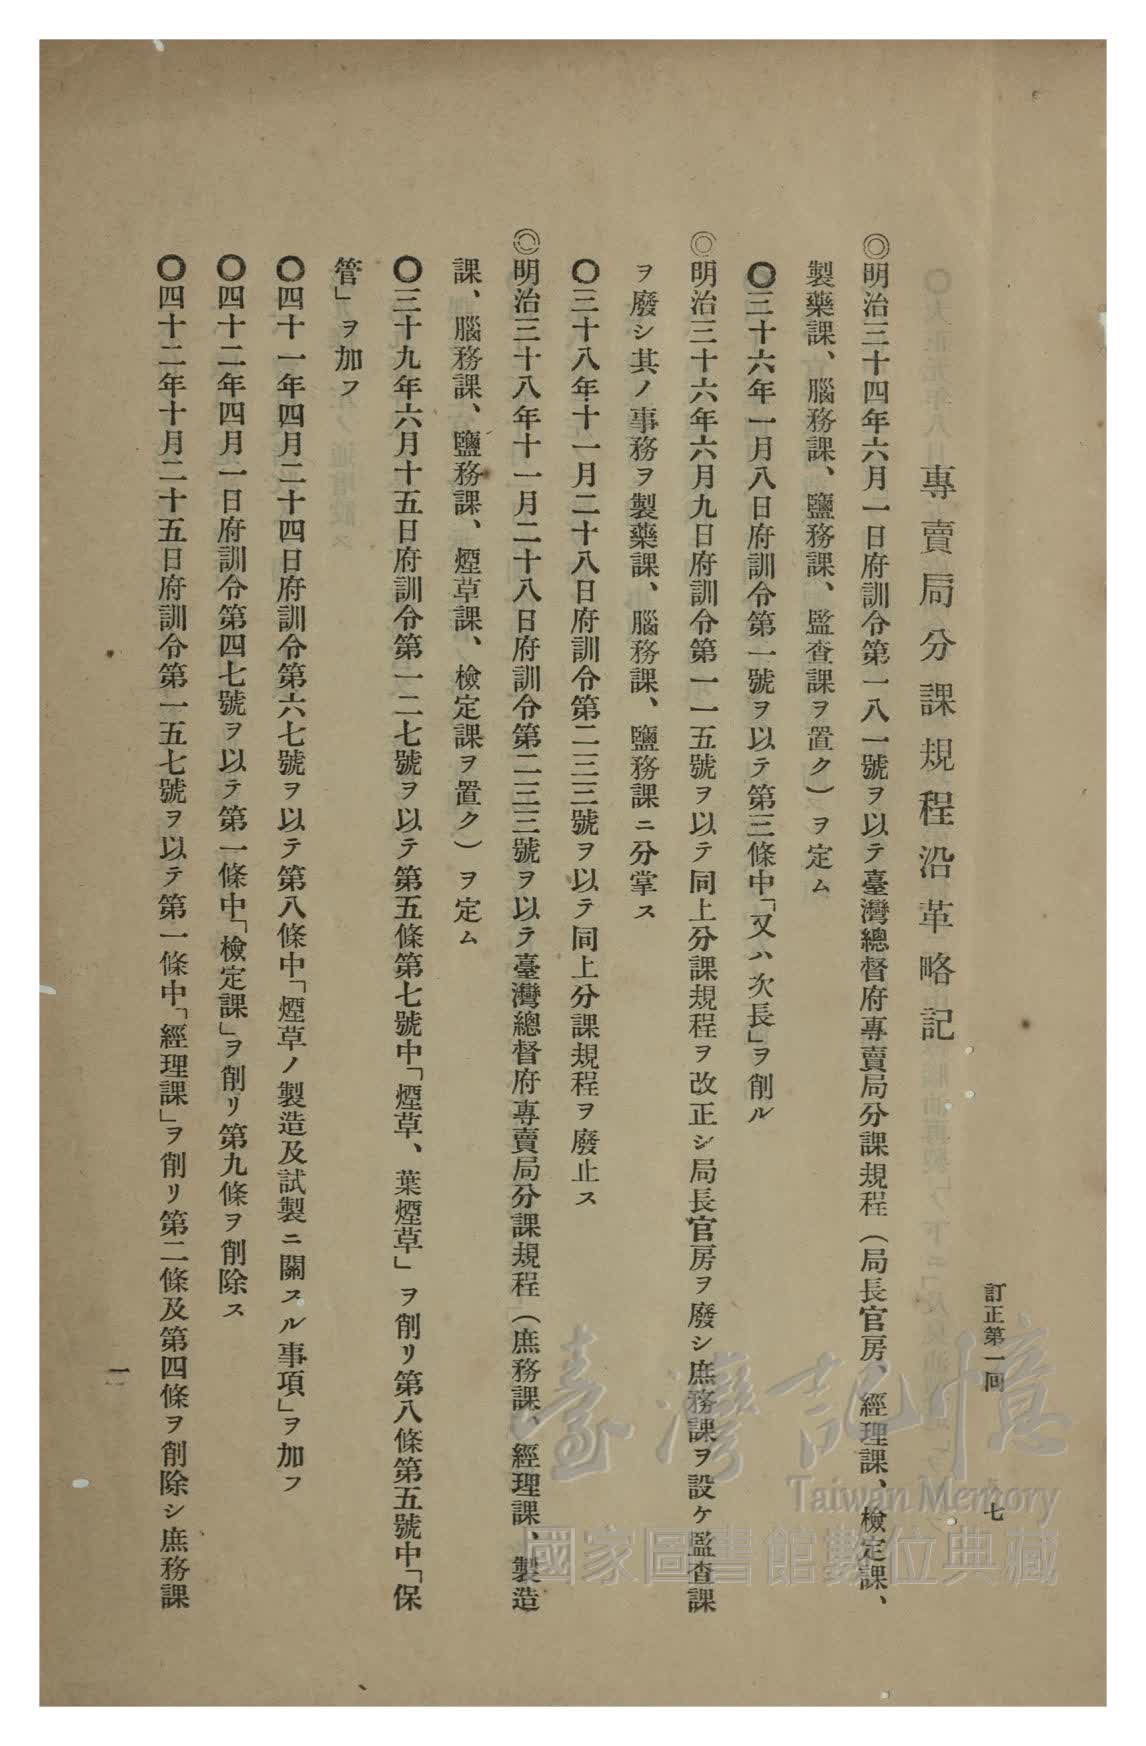 訂正第一囘 七
專賣局分課規程沿革略記
◎明治三十四年六月一日府訓令第一八一號ヲ以テ臺灣總督府專賣局分課規程（局長官房、經理課、檢定課、
製藥課、腦務課、鹽務課、監查課ヲ置ク）ヲ定ム
〇三十六年一月八日府訓令第一號ヲ以テ第三條中「又ハ次長」ヲ削ル
◎明治三十六年六月九日府訓令第一一五號ヲ以テ同上分課規程ヲ改正シ局長官房ヲ廢シ庶務課ヲ設ケ監查課
ヲ廢シ其ノ事務ヲ製藥課、腦務課、鹽務課ニ分掌ス
〇三十八年十一月二十八日府訓令第二三三號ヲ以テ同上分課規程ヲ廢止ス
◎明治三十八年十一月二十八日府訓令第二三三號ヲ以テ臺灣總督府專賣局分課規程（庶務課、經理課、製造
課、腦務課、鹽務課、煙草課、檢定課ヲ置ク）ヲ定ム
〇三十九年六月十五日府訓令第一二七號ヲ以テ第五條第七號中「煙草、葉煙草」ヲ削リ第八條第五號中「保
管」ヲ加フ
〇四十一年四月二十四日府訓令第六七號ヲ以テ第八條中「煙草ノ製造及試製ニ關スル事項」ヲ加フ
〇四十二年四月一日府訓令第四七號ヲ以テ第一條中「檢定課」ヲ削リ第九條ヲ削除ス
〇四十二年十月二十五日府訓令第一五七號ヲ以テ第一條中「經理課」ヲ削リ第二條及第四條ヲ削除シ庶務課
一
臺灣記憶
Taiwan Memory
國家圖書館數位典藏